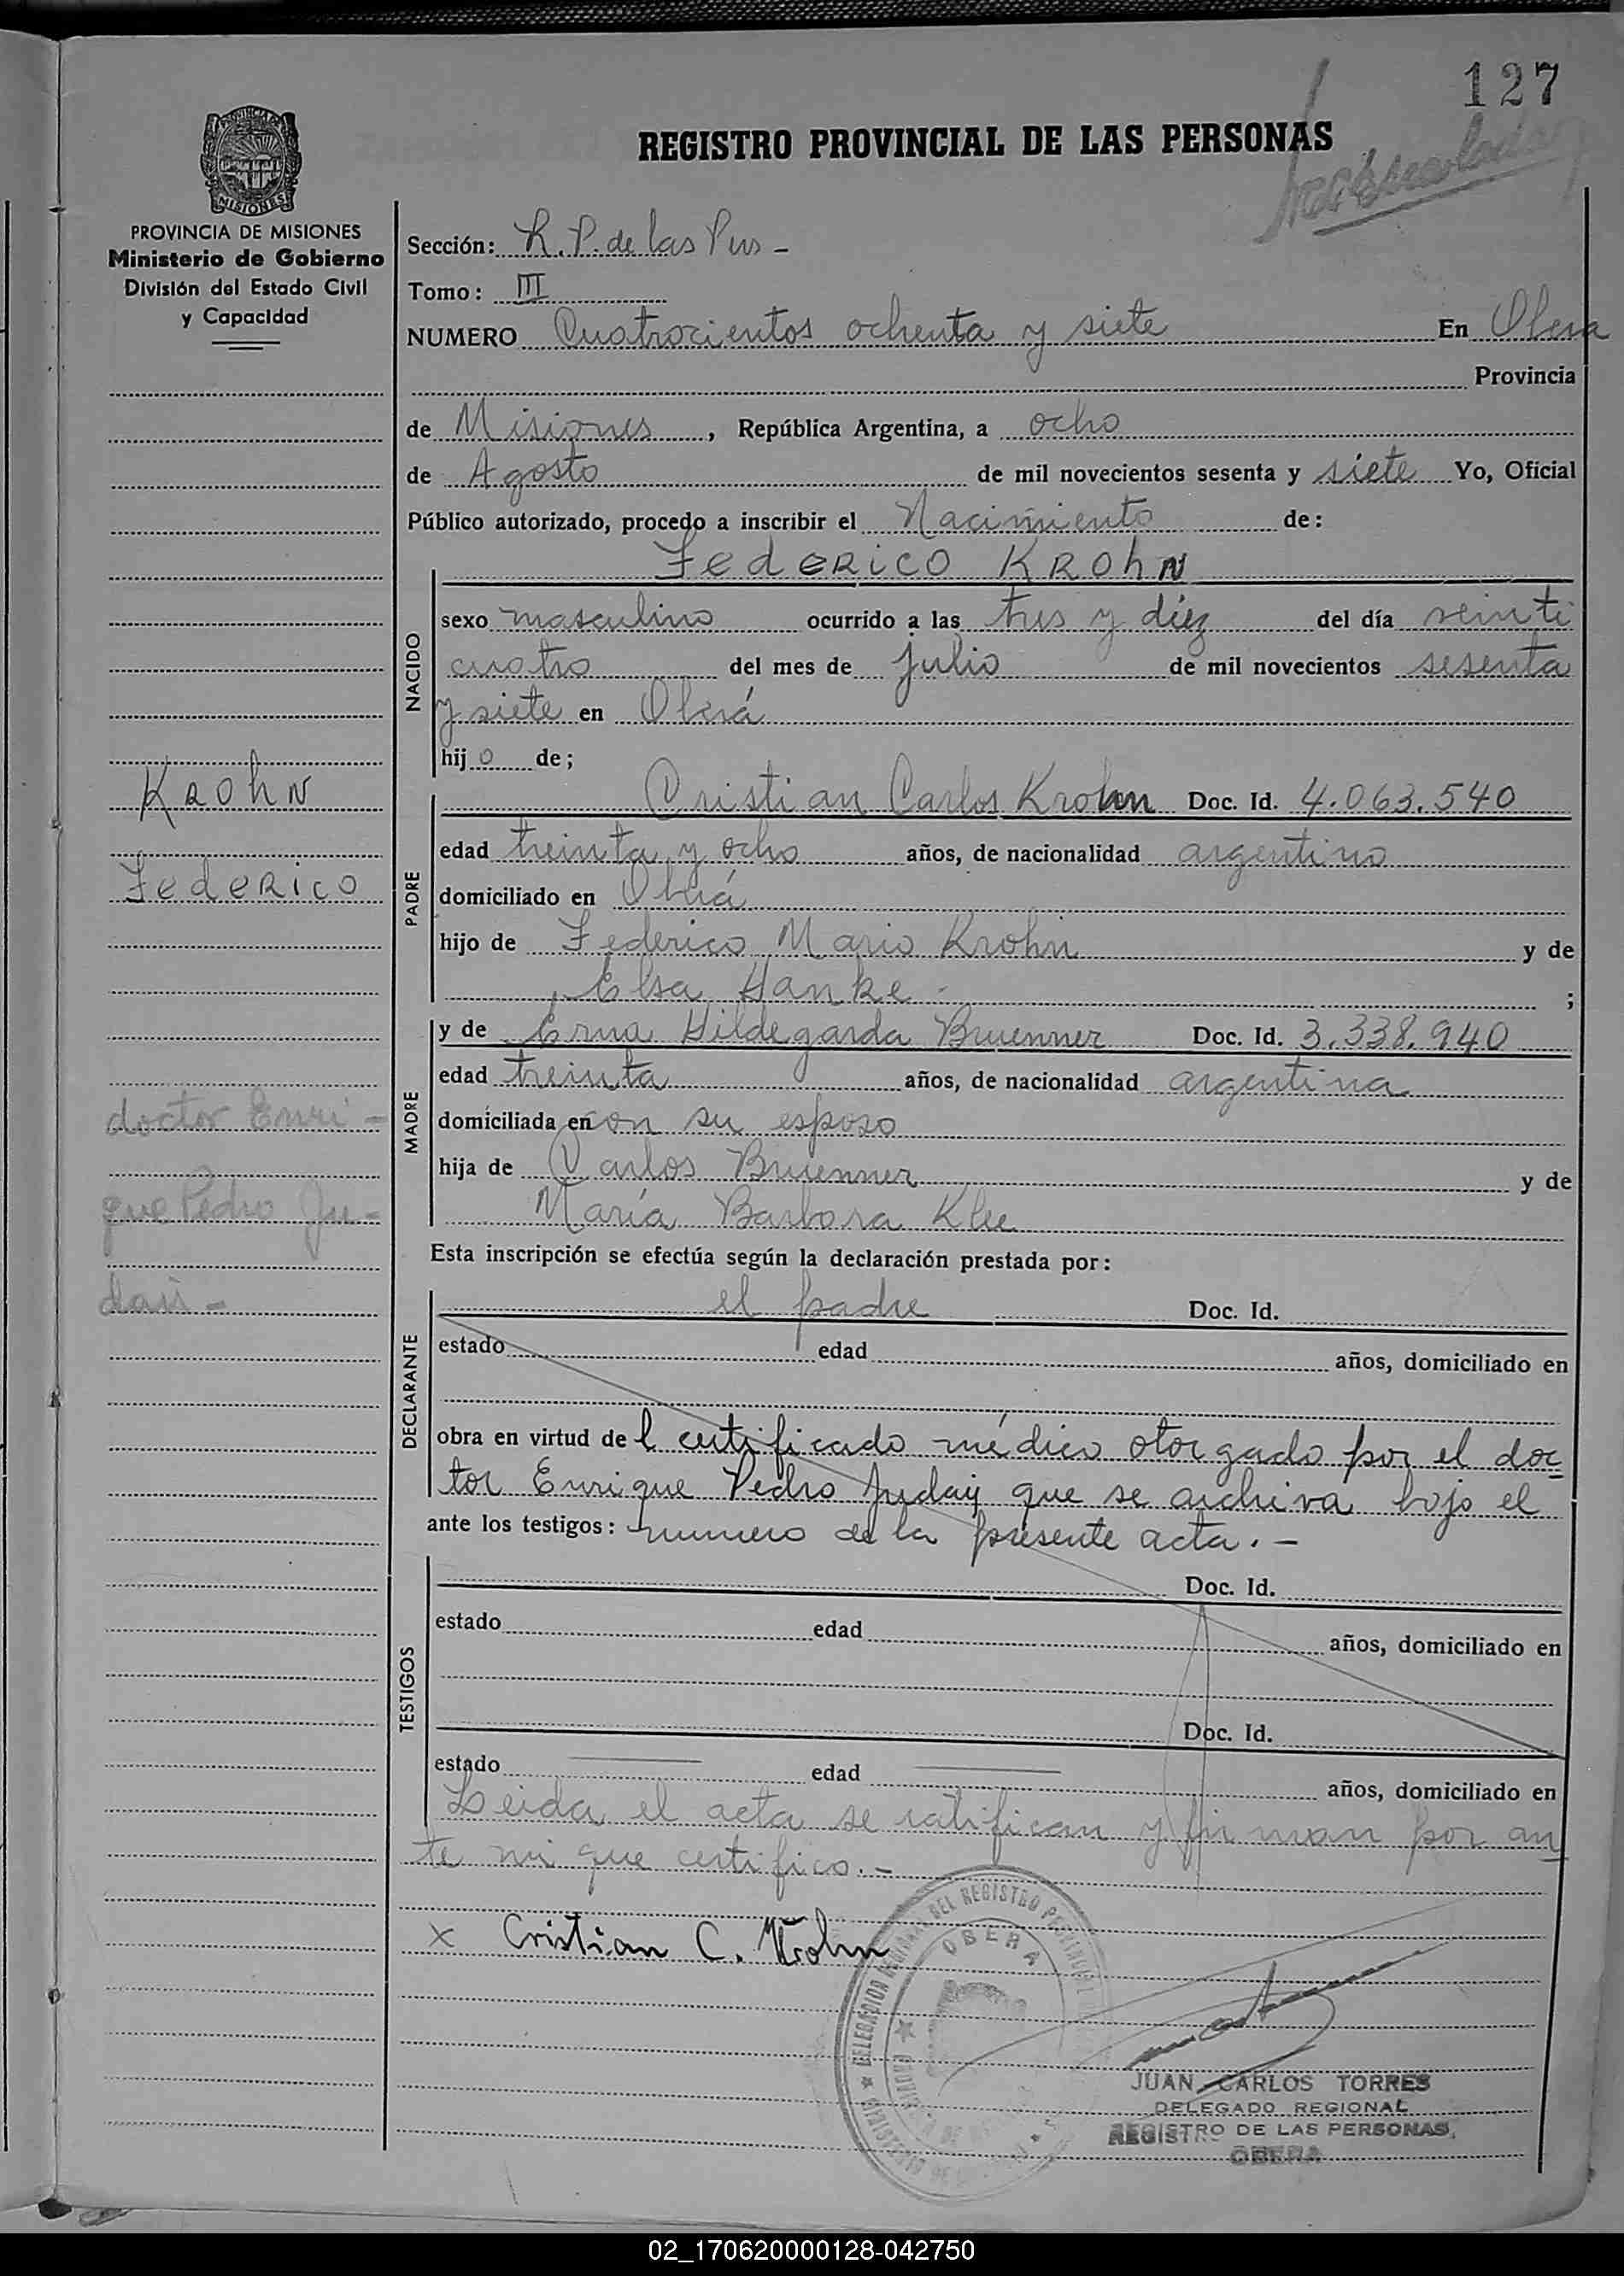 127
REGISTRO PROVINCIAL DE LAS PERSONAS
PROVINCIA DE MISIONES
MISIONES
PROVINCIA DE MISIONES
Ministerio de Gobierno
División del Estado Civil
y Capacidad
Sección: R. P. de las Pers -
Tomo: III
NUMERO Cuatrocientos ochenta y siete En Obera
Provincia
de Misiones, República Argentina, a ocho
de Agosto de mil novecientos sesenta y siete Yo, Oficial
Público autorizado, procedo a inscribir el Nacimiento de:
Federico Krohn
NACIDO
sexo masculino ocurrido a las tres y diez del día veinti
cuatro del mes de julio de mil novecientos sesenta
y siete en Oberá
hijo de;
Krohn
Federico
PADRE
Cristian Carlos Krohn Doc. Id. 4.063.540
edad treinta y ocho años, de nacionalidad argentino
domiciliado en Oberá
hijo de Federico Mario Krohn y de
Elsa Hanke - ;
MADRE
y de Erna Hildegarda Bruenner Doc. Id. 3.338.940
edad treinta años, de nacionalidad argentina
domiciliada en con su esposo
hija de Carlos Bruenner y de
María Barbora Klee
doctor Enri -
que Pedro Ju -
dais -
Esta inscripción se efectúa según la declaración prestada por:
DECLARANTE
el padre Doc. Id.
estado edad años, domiciliado en
obra en virtud del certificado médico otorgado por el doc
tor Enrique Pedro que se archiva bajo el
ante los testigos: numero de la presente acta. -
TESTIGOS
Doc. Id.
estado edad años, domiciliado en
Doc. Id.
estado edad años, domiciliado en
Leida el acta se ratifican y firman por an
te mi que certifico. -
x Cristian C. Krohn
DELEGACION REGIONAL DEL REGISTRO PROVINCIAL
OBERA
JUAN CARLOS TORRES
DELEGADO REGIONAL
REGISTRO DE LAS PERSONAS,
OBERA
02_170620000128-042750